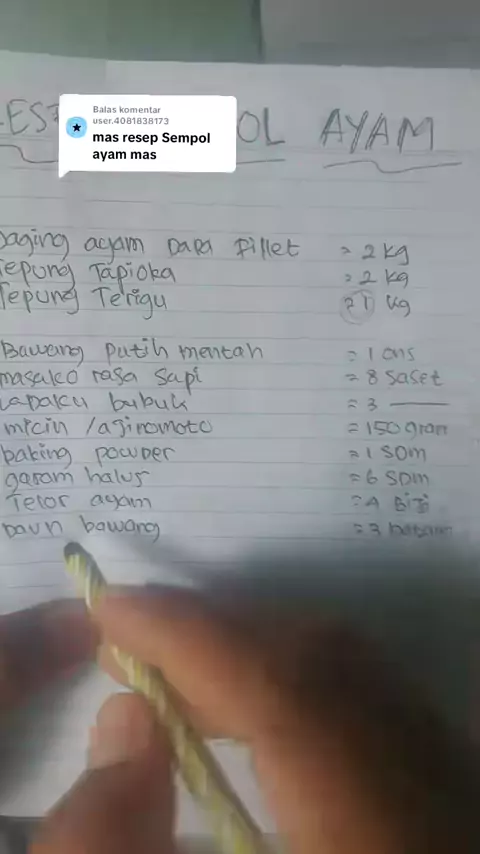 Balas komentar
user.4081838173
mas resep Sempol
ayam mas
OL AYAM
Daging ayam Dada Fillet = 2 kg
Tepung Tapioka = 2 kg
Tepung Terigu kg
Bawang putih mentah = 1 ons
masako rasa sapi = 8 saset
Ladaku bubuk = 3
micin /ajinomoto = 150 gram
baking powder = 1 SDM
garam halus = 6 SDM
Telor ayam = 4 Biji
Daun bawang = 3